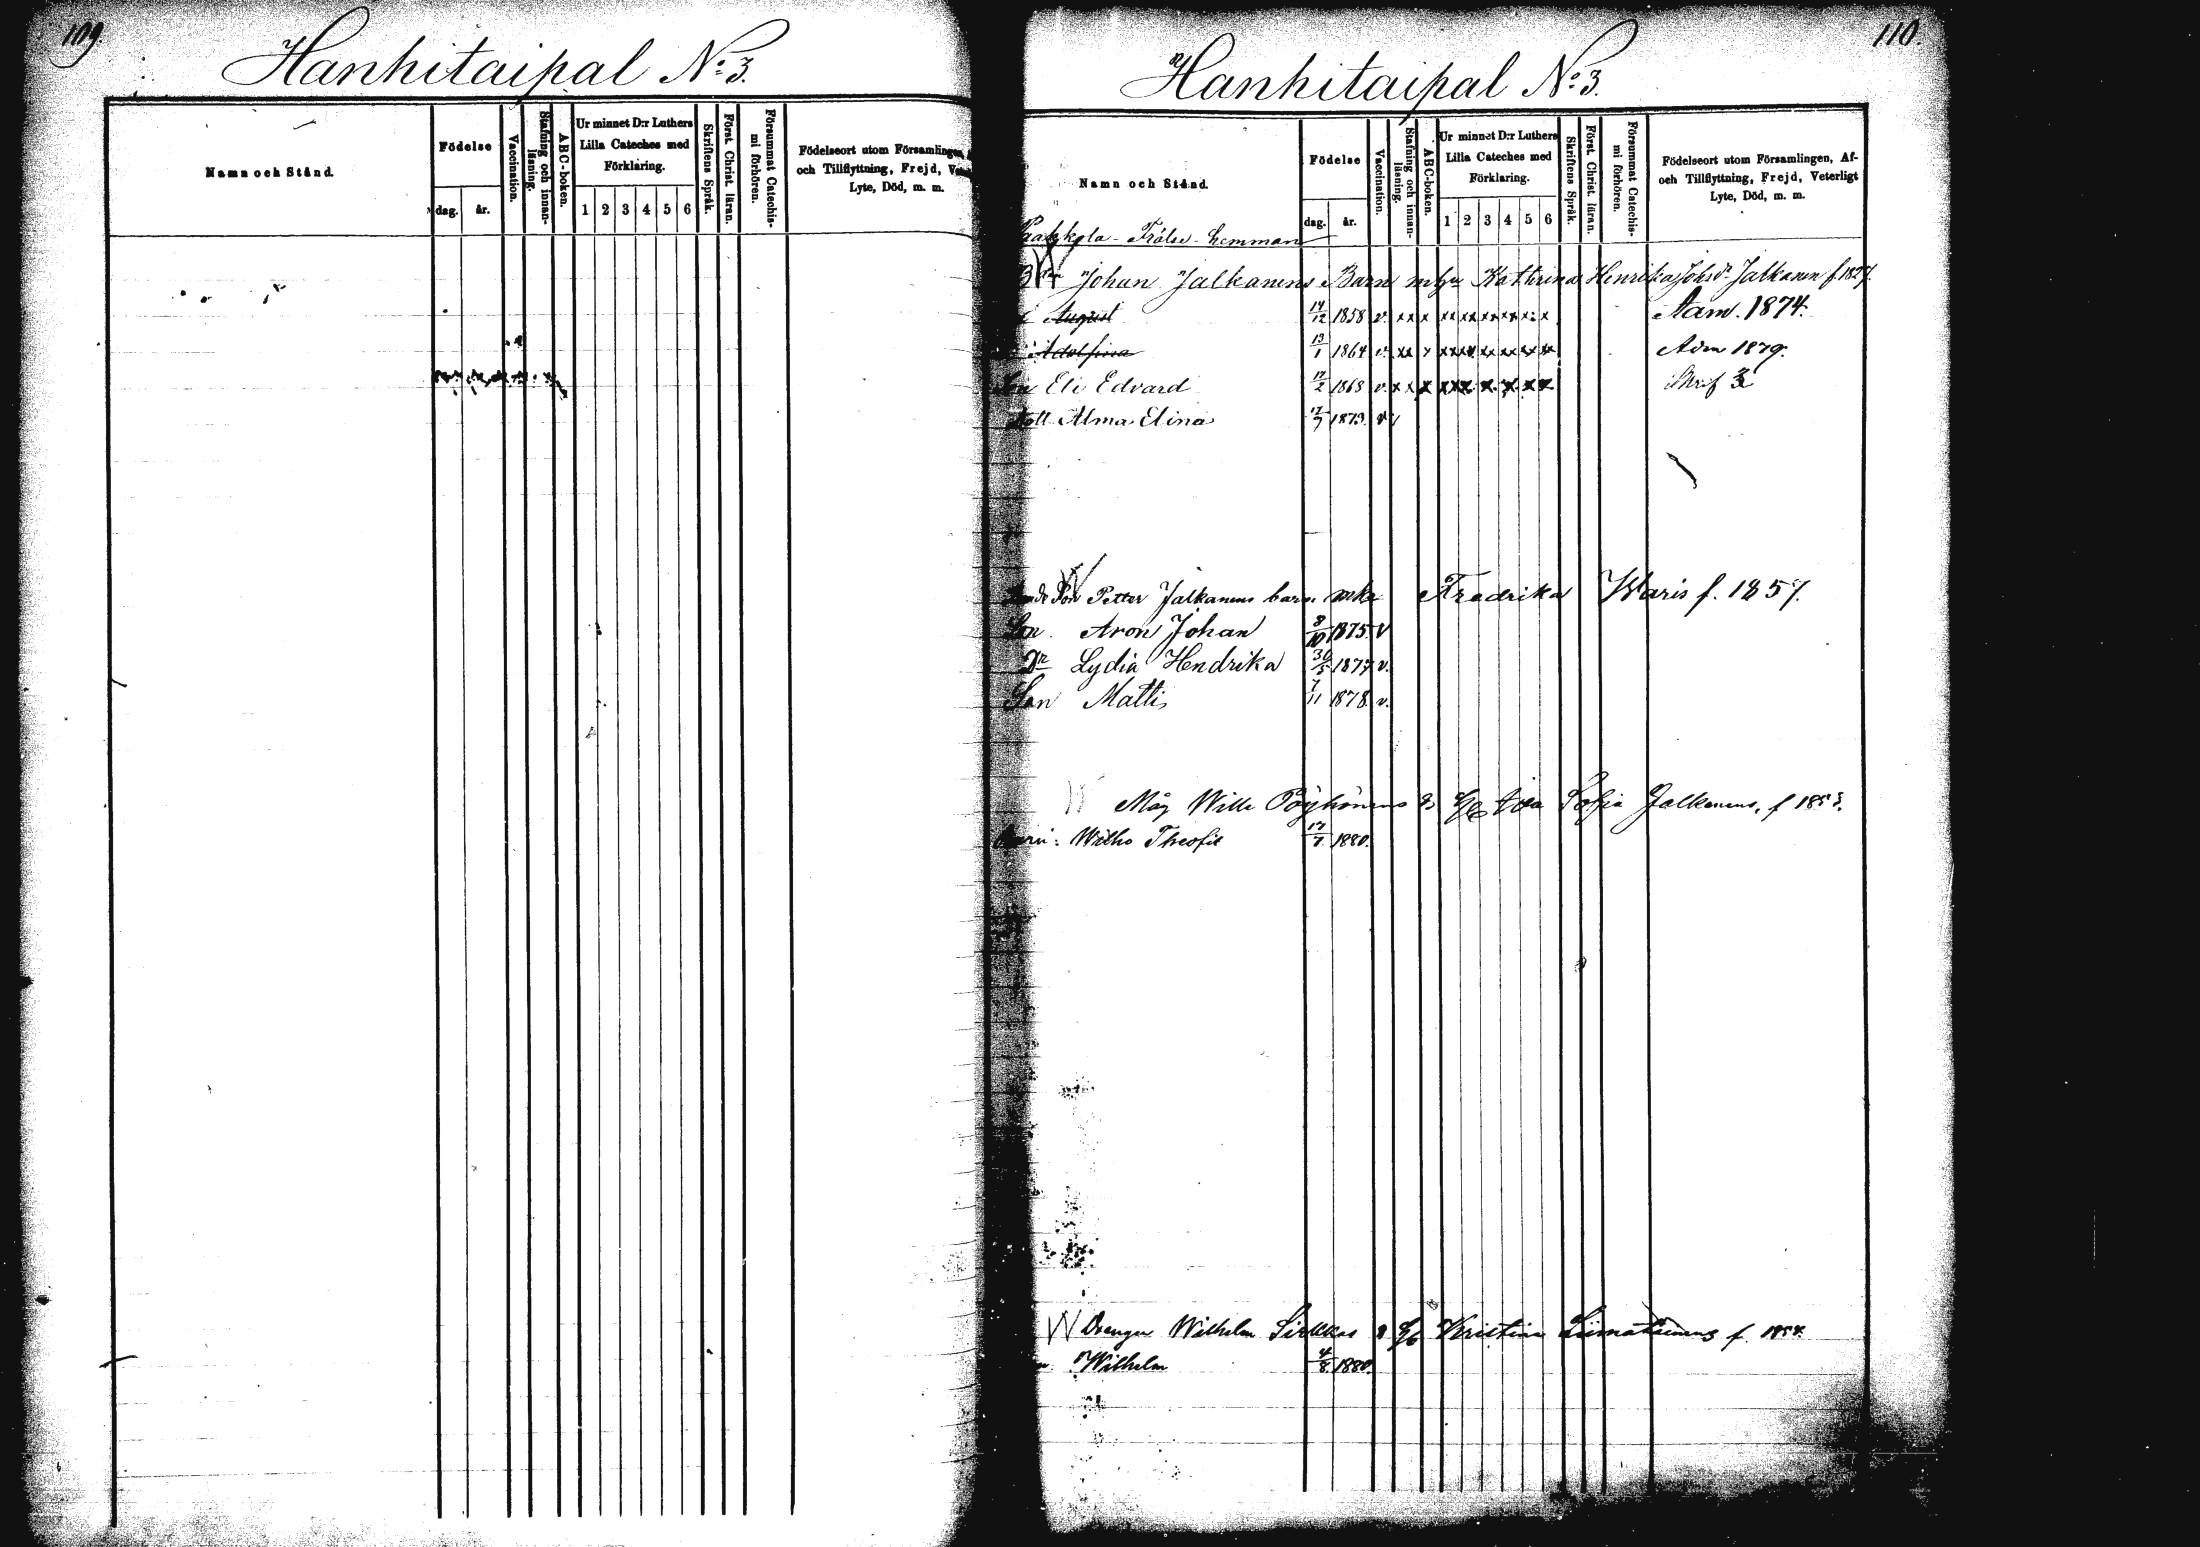 109.
Hanhitaipal No: 3.
Namn och Stånd.
Födelse
dag.
år.
Vaccination.
Stafning och innan-
läsning.
ABC-boken.
Ur minnet D:r Luthers
Lilla Cateches med
Förklaring.
1 2 3 4 5 6
Skriftens Språk.
Förest. Christ. läran.
Försummat Catechis-
mi förhören.
Födelseort utom Församlingen,
och Tillflyttning, Frejd,
Lyte, Död, m. m.
110.
Hanhitaipal No: 3.
Namn och Stånd.
Födelse
dag.
år.
Vaccination.
Stafning och innan-
läsning.
ABC-boken.
Ur minnet D:r Luthers
Lilla Cateches med
Förklaring.
1 2 3 4 5 6
Skriftens Språk.
Först. Christ. läran.
Försummat Catechis-
mi förhören.
Födelseort utom Församlingen, Af-
och Tillflyttning, Frejd, Veterligt
Lyte, Död, m. m.
Frälse-hemman
Johan Jalkanens Barn m hu Kathrina Henrika Johsdr Jalkanen f. 1827.
August 14/12 1858 v. xx x xx xx xx x x x 1874.
Adolfina 13/1 1864 v. xx x xxxx xx xx xx xx Adm 1879.
Eli Edvard 12/2 1868 v. x x x xxx x x xx Skrif 3
Alma Elina 12/7 1873. v
Petter Jalkanens barn mhu Fredrika Waris f. 1857.
Son Aron Johan 8/10 1875. v
Dr Lydia Hendrika 30/5 1877 v.
Son Matti 7/11 1878. v.
Måg Wille Pöyhönens & Eva Sofia Jalkanens, f 1853.
Barn: Wilho Theofil 17/7 1880.
W Drengen Wilhelm Sirkkas & Kristina Liimatainens f. 1854.
Wilhelm 4/8 1880.